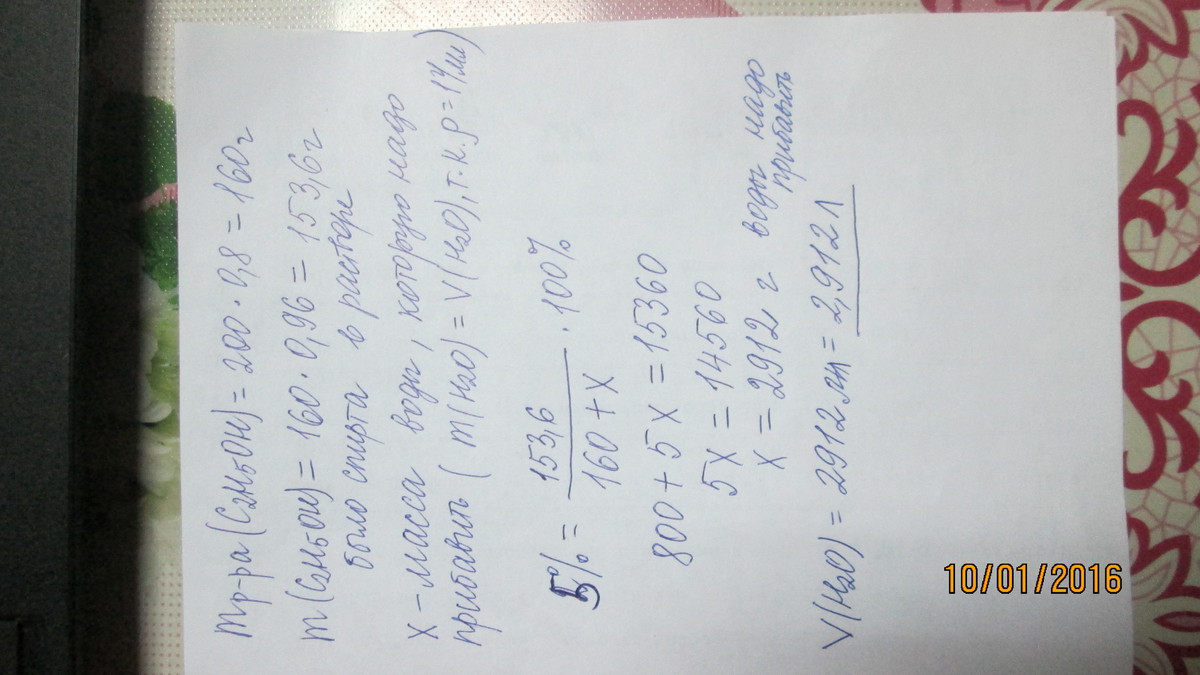 mр-ра (C2H5OH) = 200 · 0,8 = 160г
m(C2H5OH) = 160 · 0,96 = 153,6г
было спирта в растворе
X – масса воды, которую надо
прибавить ( m(H2O) = V(H2O), т.к. ρ = 1г/мл)
5% = 153,6 / 160 + X · 100%
800 + 5X = 15360
5X = 14560
X = 2912 г воды надо
прибавить
V(H2O) = 2912 мл = 2,912 л
10/01/2016